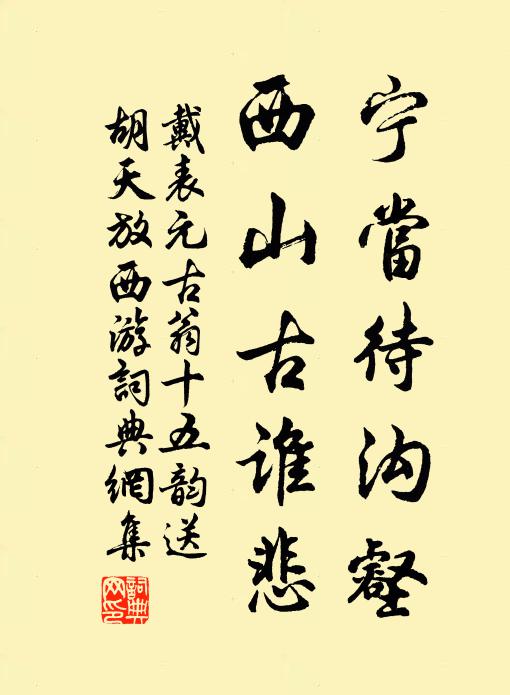 宁當待沟壑
西山古谁悲
戴表元古翁十五韵送
胡天放西游詞典網集
詞典网印